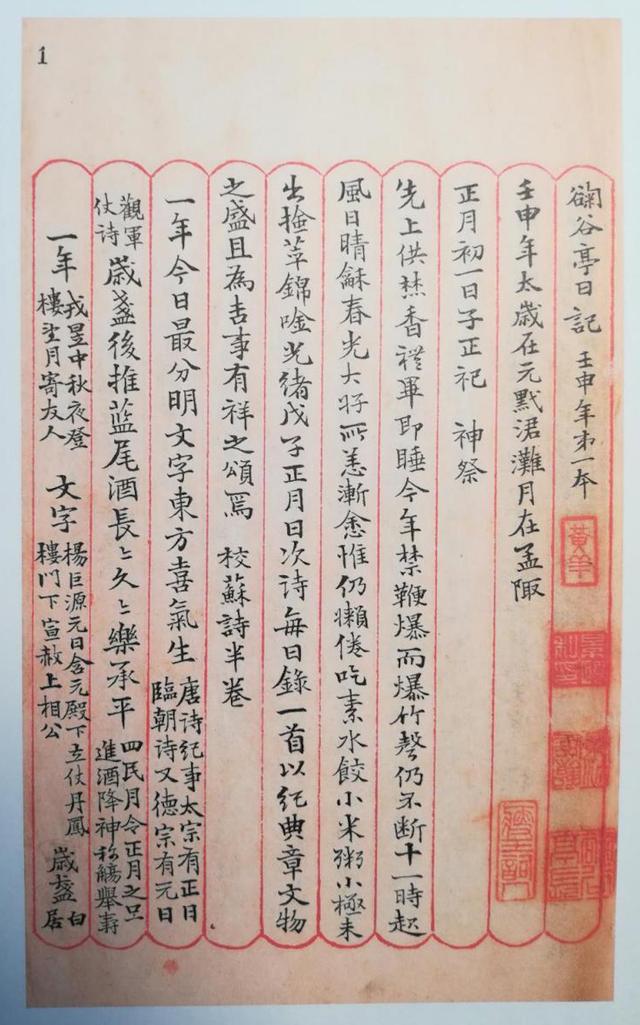 1
谷亭日記 壬申年第一本
壬申年太歲在元默涒灘月在孟陬
正月初一日子正祀 神祭
先上供焚香禮畢即睡今年禁鞭爆而爆竹聲仍不斷十一時起
風日晴龢春光大好所恙漸愈惟仍懶倦吃素水餃小米粥小極未
出撿萃錦唫光緒戊子正月日次詩每日錄一首以紀典章文物
之盛且為吉事有祥之頌焉 校蘇詩半卷
一年今日最分明文字東方喜氣生 唐诗纪事太宗有正日臨朝诗又德宗有元日
觀軍仗诗 歲盞後推蓝尾酒長〻久〻樂承平 四民月令正月之旦進酒降神称觴舉壽
一年 戎昱中秋夜澄樓望月寄友人 文字 楊巨源元日含元殿下立仗丹鳳樓門下宣赦上相公 歲盞 白居